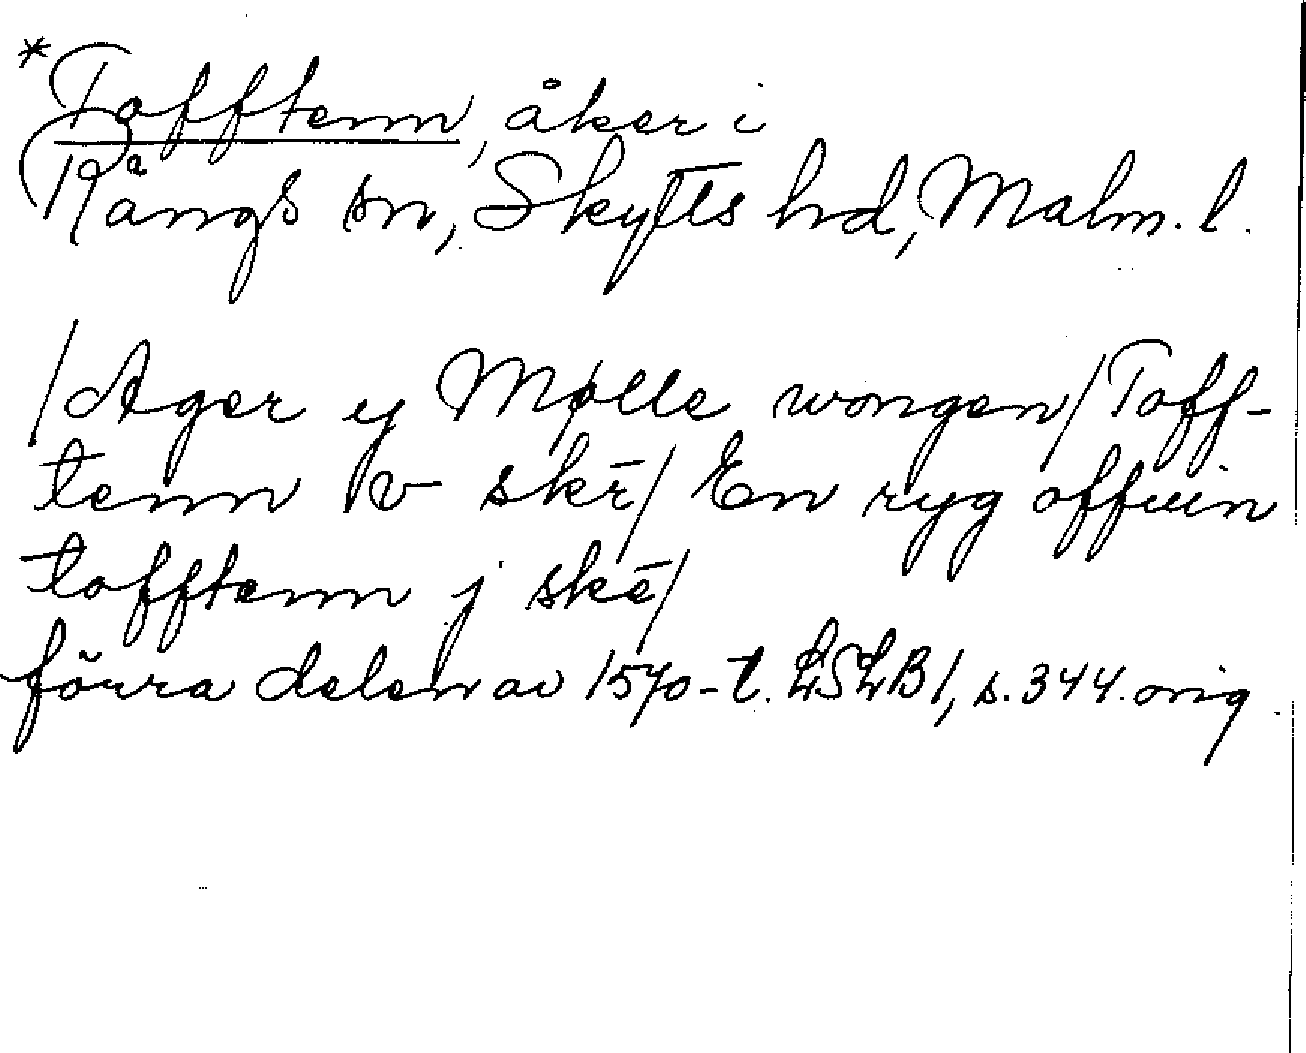 *Tofftenn, åker i
Rångs sn, Skytts hd, Malm. l.
/Ager y Mølle wongen/Toff-
tenn v skē/ En ryg offuin
tofftenn j skē/
förra delen av 1570-t. LSLB1, s. 344. orig